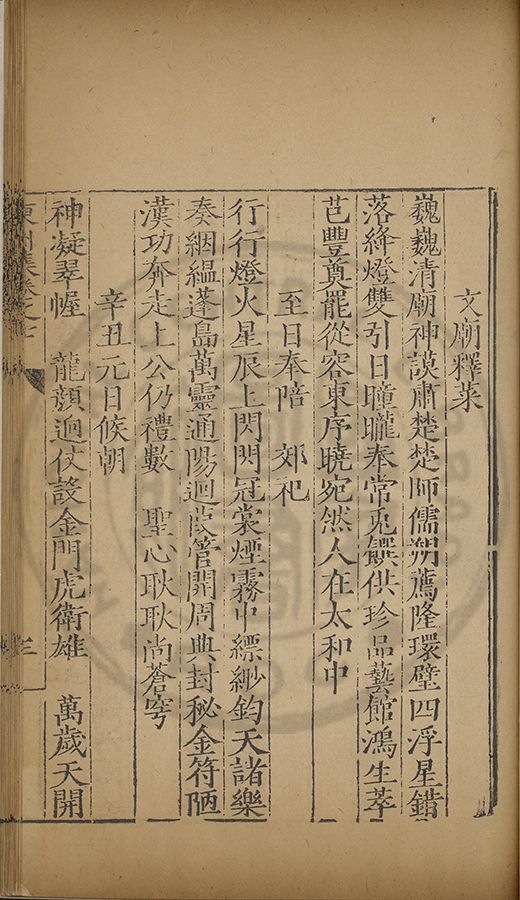 文廟釋菜
巍巍清廟神謨肅楚楚師儒朔薦隆環璧四浮星錯
落絳燈雙引日曈曨奉常兎饌供珍品藝館鴻生萃
芭豐奠罷從容東序曉宛然人在太和中
至日奉陪　郊祀
行行燈火星辰上閃閃冠裳煙霧中縹緲鈞天諸樂
奏絪緼蓬島萬靈通陽迴葭管開周典封秘金符陋
漢功奔走上公仍禮數　聖心耿耿尚蒼穹
辛丑元日候朝
神凝翠幄　龍顏迥仗設金門虎衛雄　萬歲天開